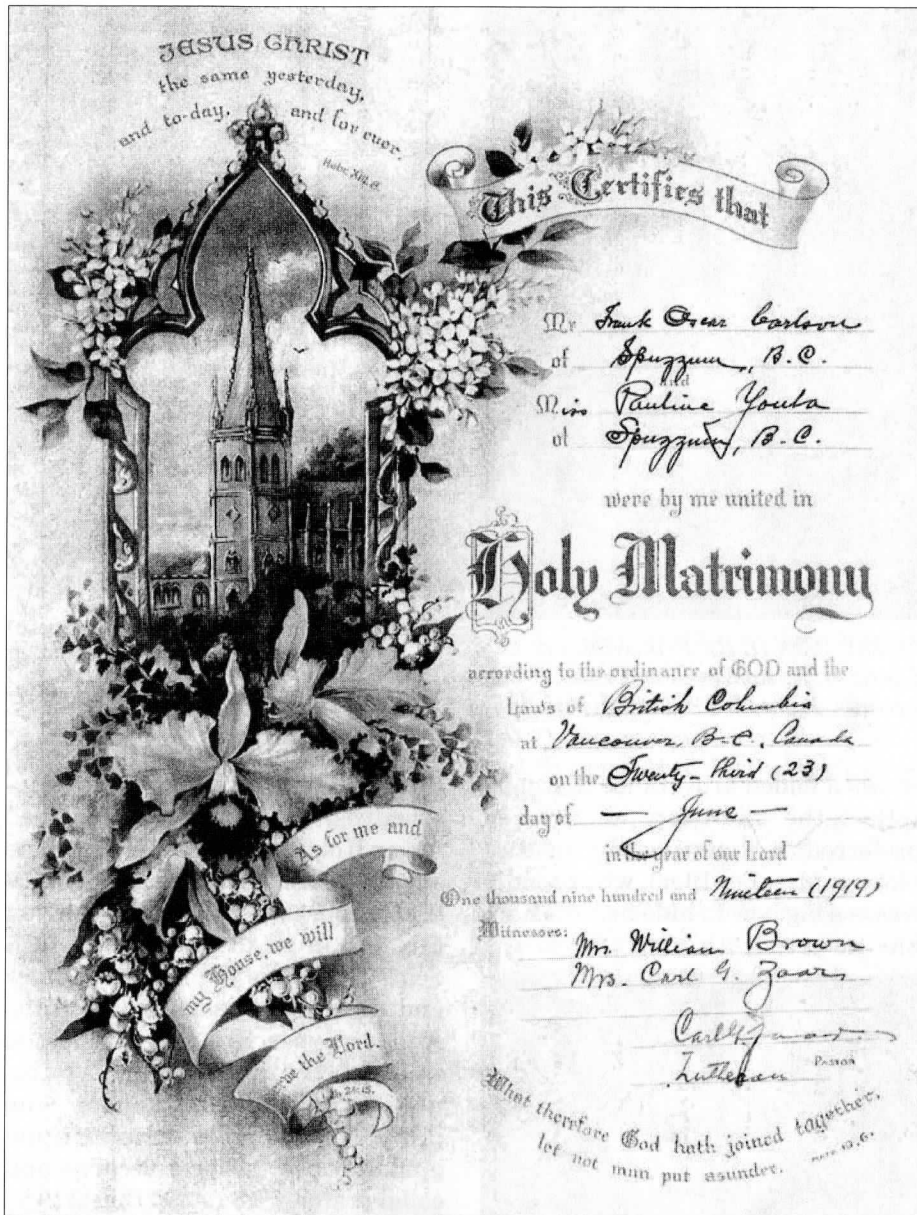 JESUS CHRIST
the same yesterday,
and to-day, and for ever.
Hebr. XIII. 8.
This Certifies that
Mr Frank Oscar Carlson
of Spuzzum, B.C.
and
Miss Pauline Youla
of Spuzzum, B.C.
were by me united in
Holy Matrimony
according to the ordinance of GOD and the
Laws of British Columbia
at Vancouver, B.C., Canada
on the Twenty-third (23)
day of — June —
in the year of our Lord
One thousand nine hundred and Nineteen (1919)
Witnesses:
Mrs. William Brown
Mrs. Carl G. Zaar
Carl G.
Lutheran Pastor
As for me and
my House, we will
the Lord.
24:15.
What therefore God hath joined together,
let not man put asunder.